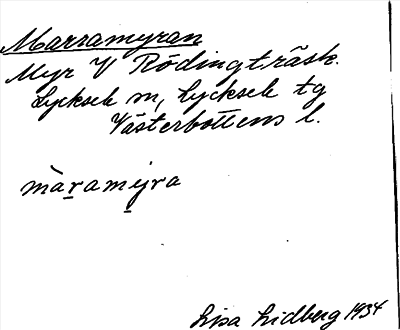 Marramyran
Myr V Rödingträsk.
Lycksele sn, Lycksele tg
Västerbottens l.
màr̲amy̲ra
Lisa Lidberg 1934